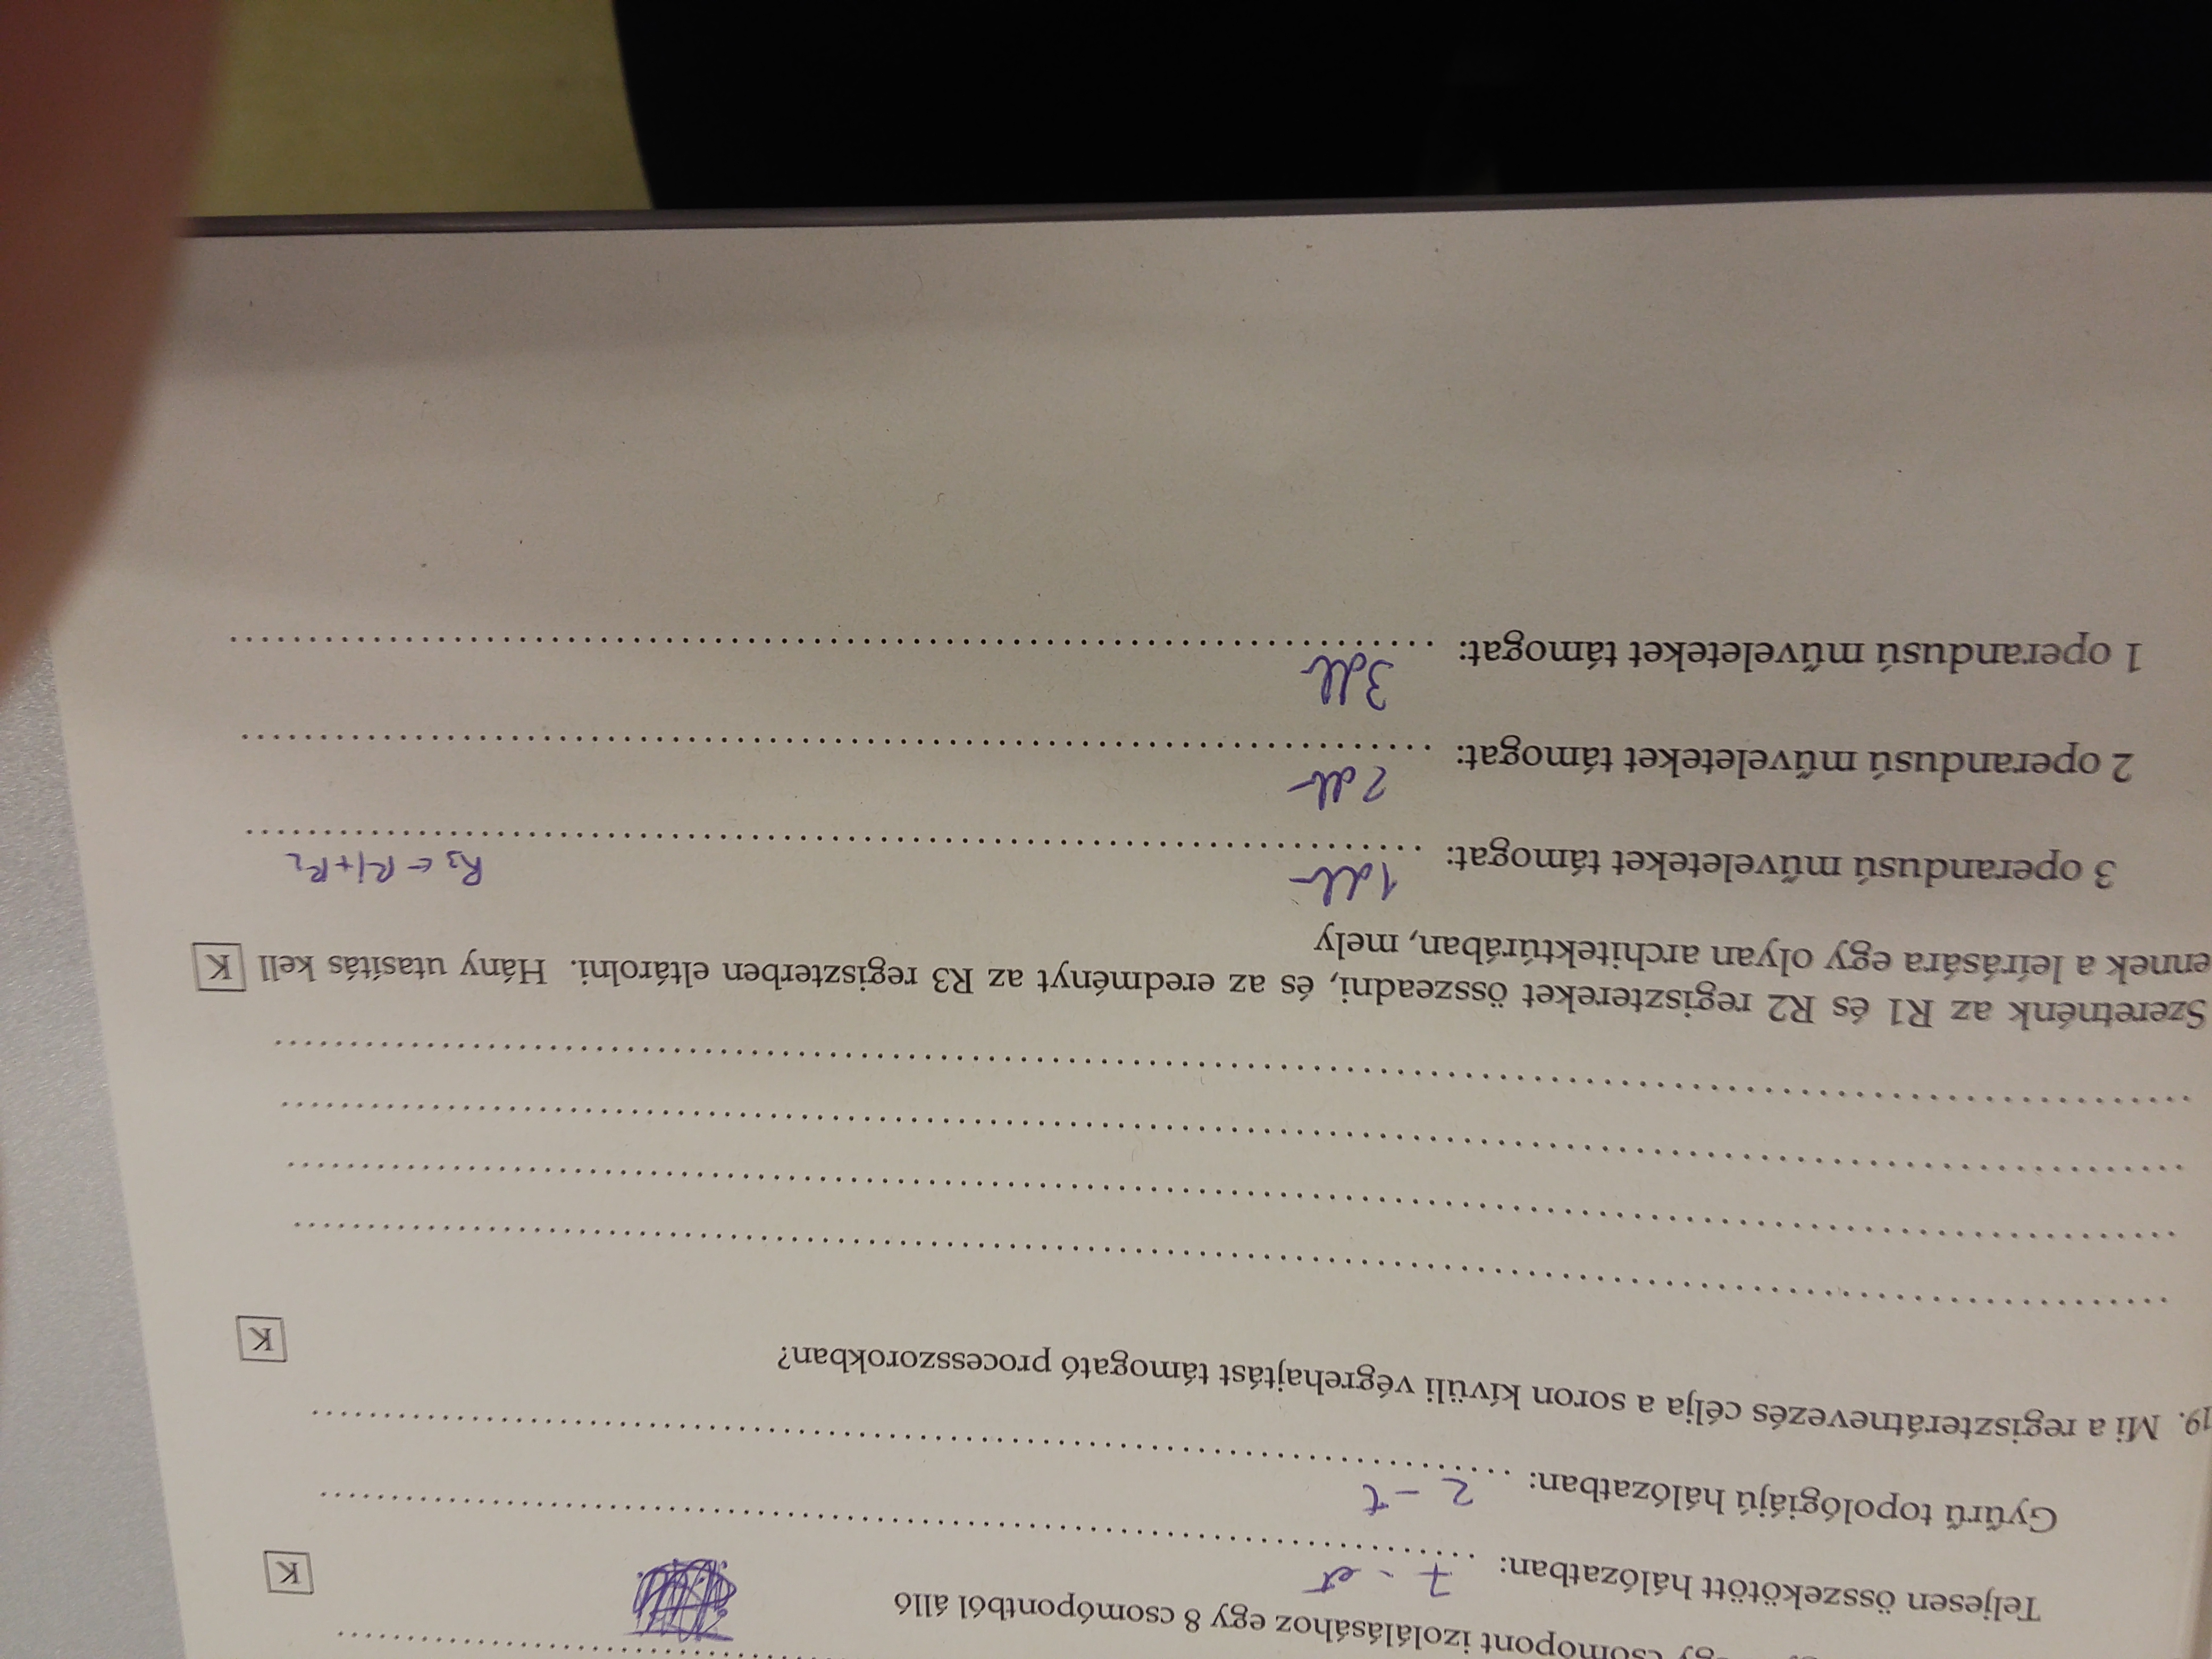 csomópont izolálásához egy 8 csomópontból álló
K
Teljesen összekötött hálózatban: 7 - et
Gyűrű topológiájú hálózatban: 2 - t
19. Mi a regiszterátnevezés célja a soron kívüli végrehajtást támogató processzorokban?
K
Szeretnénk az R1 és R2 regisztereket összeadni, és az eredményt az R3 regiszterben eltárolni. Hány utasítás kell K
ennek a leírására egy olyan architektúrában, mely
3 operandusú műveleteket támogat: 1db R3 ← R1+R2
2 operandusú műveleteket támogat: 2db
1 operandusú műveleteket támogat: 3db